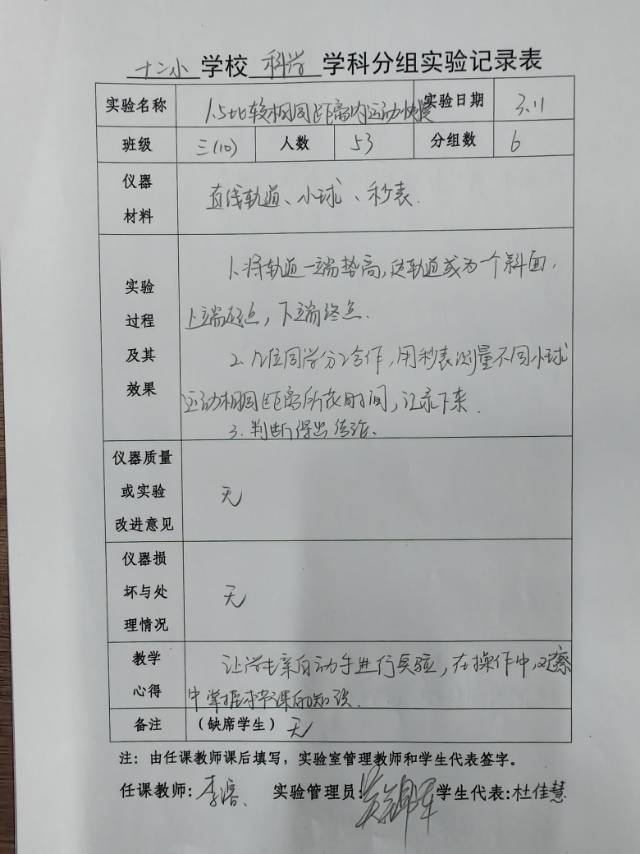 十二小 学校 科学 学科分组实验记录表
实验名称 1.5比较相同距离内运动快慢 实验日期 3.11
班级 三(10) 人数 53 分组数 6
仪器材料 直线轨道、小球、秒表.
实验过程及其效果 1.将轨道一端垫高,使轨道成为一个斜面,
上端起点,下端终点.
2.几位同学分工合作,用秒表测量不同小球
运动相同距离所花时间,记录下来.
3.判断得出结论.
仪器质量或实验改进意见 无
仪器损坏与处理情况 无
教学心得 让学生亲自动手进行实验,在操作中,观察
中掌握本节课的知识.
备注 (缺席学生) 无
注:由任课教师课后填写,实验室管理教师和学生代表签字。
任课教师: 李 实验管理员: 学生代表:杜佳慧